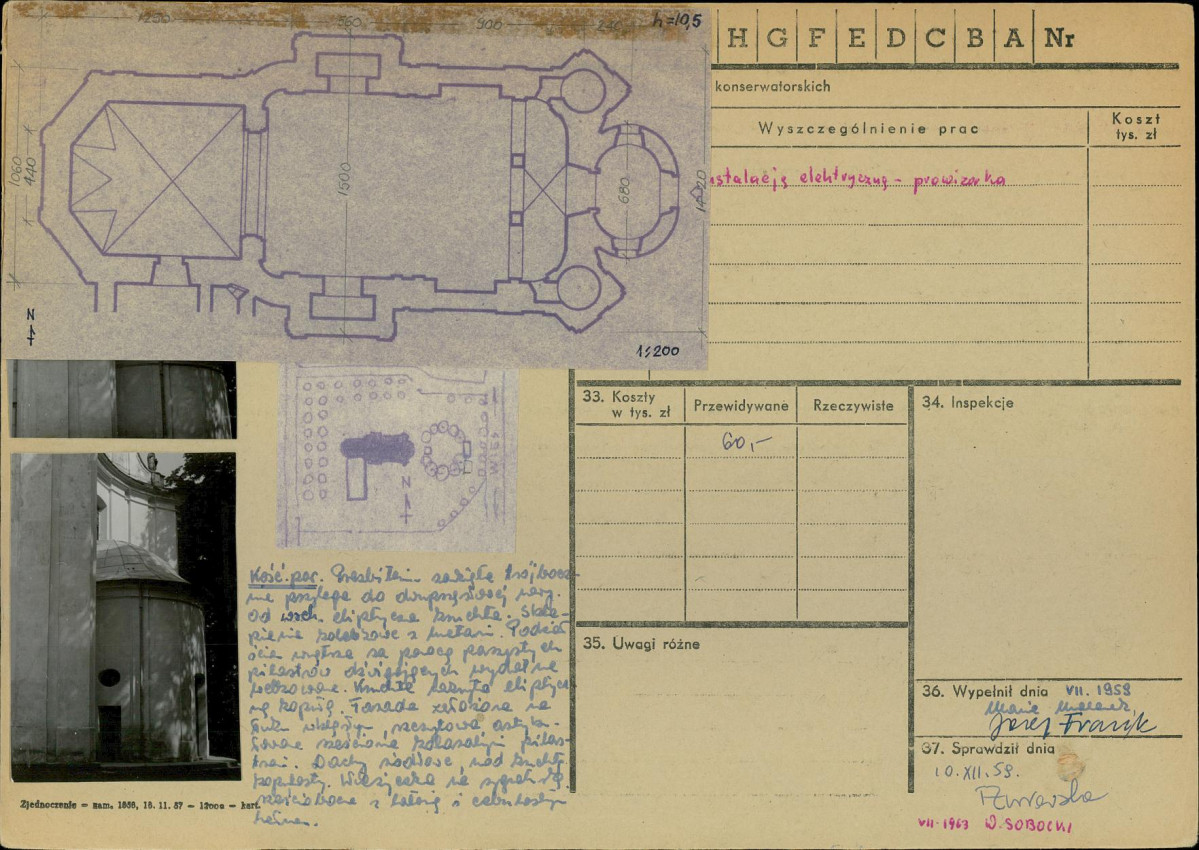 1250 560 900 240 h=10,5
1060
440
1500
680
1420
N
1:200
H G F E D C B A Nr
konserwatorskich
Wyszczególnienie prac
Koszt
tys. zł
instalację elektryczną - prowizorka
33. Koszty
w tys. zł
Przewidywane
Rzeczywiste
60,-
34. Inspekcje
35. Uwagi różne
36. Wypełnił dnia VII. 1959
Maria
Józef Frazik
37. Sprawdził dnia
10.XII.59.
VII-1963 W. SOBOCKI
WIEŚ
N
Kość. par. Prezbiterium zamknięte trójbocz-
nie przylega do dwuprzęsłowej nawy.
Od wsch. eliptyczna kruchta. Skle-
pienie kolebkowe z lunetami. Podział
ścian wnętrza za pomocą parzystych
pilastrów dźwigających wydatne
belkowanie. Kruchta nakryta eliptycz-
ną kopułą. Fasada założona na
łuku wklęsłym, szczytowa, artyku-
łowana sześcioma kolosalnymi pilas-
trami. Dachy siodłowe, nad kruchtą
kopulasty. Wieżyczka na sygnaturkę
sześcioboczna z latarnią i cebulastym
hełmem.
Zjednoczenie - zam. 1868, 18. 11. 57 - 12000 - kart.